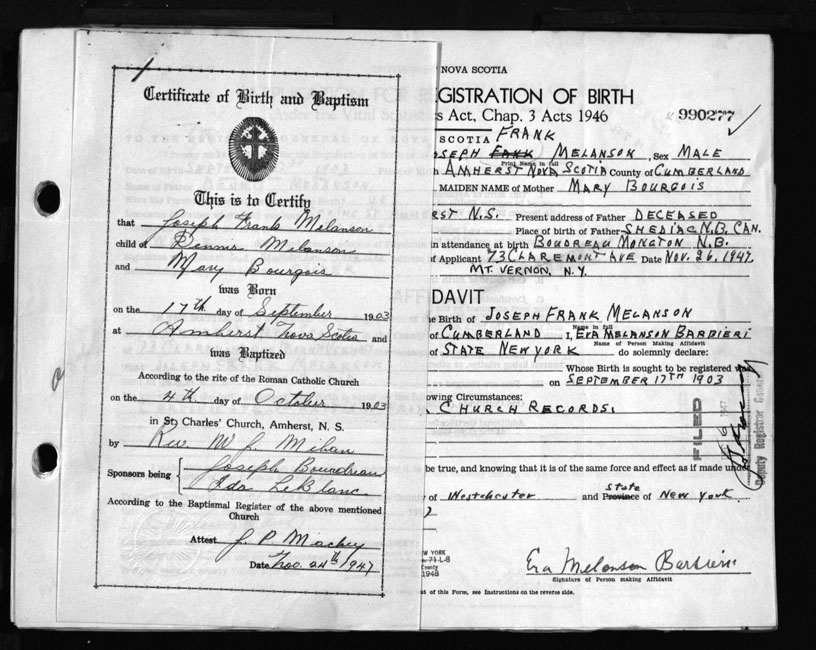 Certificate of Birth and Baptism
This is to Certify
that Joseph Frank Melanson
child of Dennis Melanson
and Mary Bourgois
was Born
on the 17th day of September 1903
at Amherst Nova Scotia and
was Baptized
According to the rite of the Roman Catholic Church
on the 4th day of October 1903
in St. Charles' Church, Amherst, N. S.
by Rev. W. J. Mihan
Sponsors being Joseph Boudreau
Ida LeBlanc
According to the Baptismal Register of the above mentioned
Church
Attest J. P. Mackey
Date Nov. 24th 1947
NOVA SCOTIA
GISTRATION OF BIRTH
s Act, Chap. 3 Acts 1946
990277
SCOTIA FRANK
OSEPH FANK MELANSON, Sex MALE
Print Name in full
AMHERST NOVA SCOTIA County of CUMBERLAND
MAIDEN NAME of Mother MARY BOURGOIS
RST N.S. Present address of Father DECEASED
Place of birth of Father SHEDIAC N.B. CAN.
in attendance at birth BOUDREAU MONGTON N.B.
of Applicant 73 CLAREMONT AVE Date NOV. 26, 1947.
MT. VERNON, N.Y.
DAVIT
the Birth of JOSEPH FRANK MELANSON
Name in full
of CUMBERLAND I, EVA MELANSON BARBIERI
Name of Person Making Affidavit
of STATE NEW YORK do solemnly declare:
Whose Birth is sought to be registered was
on SEPTEMBER 17TH 1903
llowing Circumstances:
CHURCH RECORDS.
FILED
1947
Deputy Registrar General
be true, and knowing that it is of the same force and effect as if made under
State
y of Westchester and Province of New York.
W YORK
o. 71-L-8
County
1948
Eva Melanson Barbieri
Signature of Person making Affidavit
t of this Form, see Instructions on the reverse side.